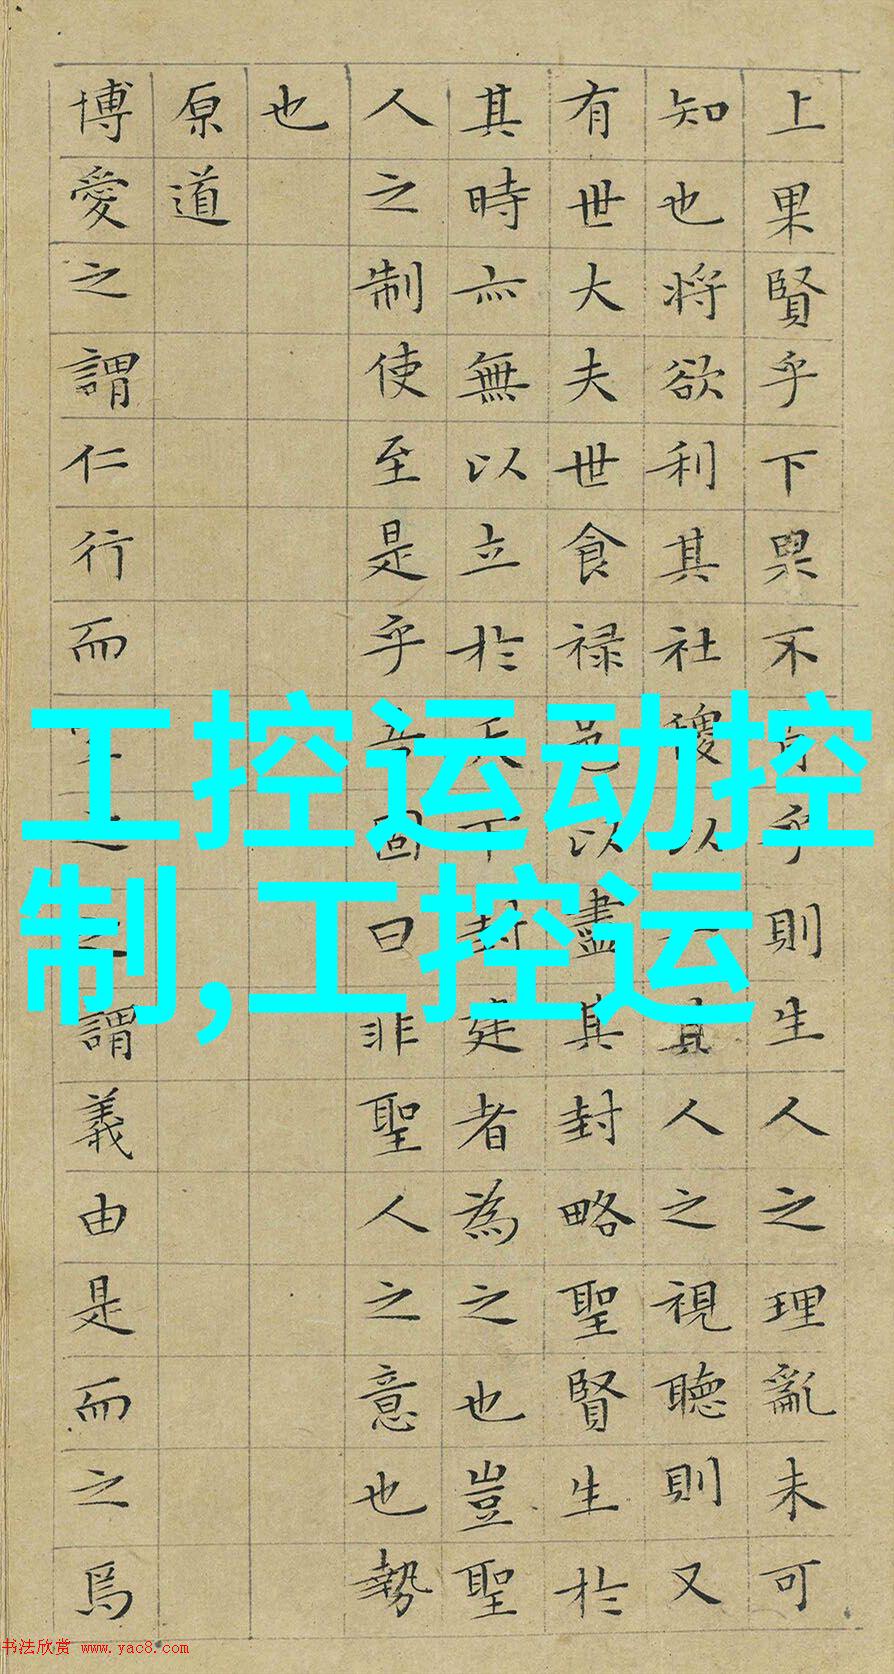 上果賢乎下果不肖乎則生人之理亂未可
知也將欲利其社稷以一其人之視聽則又
有世大夫世食禄邑以盡其封略聖賢生於
其時亦無以立於天下封建者為之也豈聖
人之制使至是乎吾固曰非聖人之意也勢
也
原道
博愛之謂仁行而宜之之謂義由是而之焉
工控运动控
制,工控运
书法欣赏 www.yac8.com